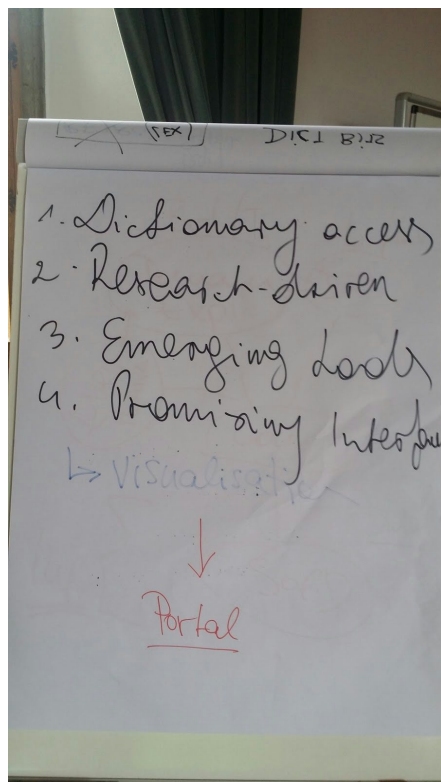 (LEX) DICT
1. Dictionary access
2. Research-driven
3. Emerging tools
4. Promising Interfac
↳ Visualisation
↓
Portal